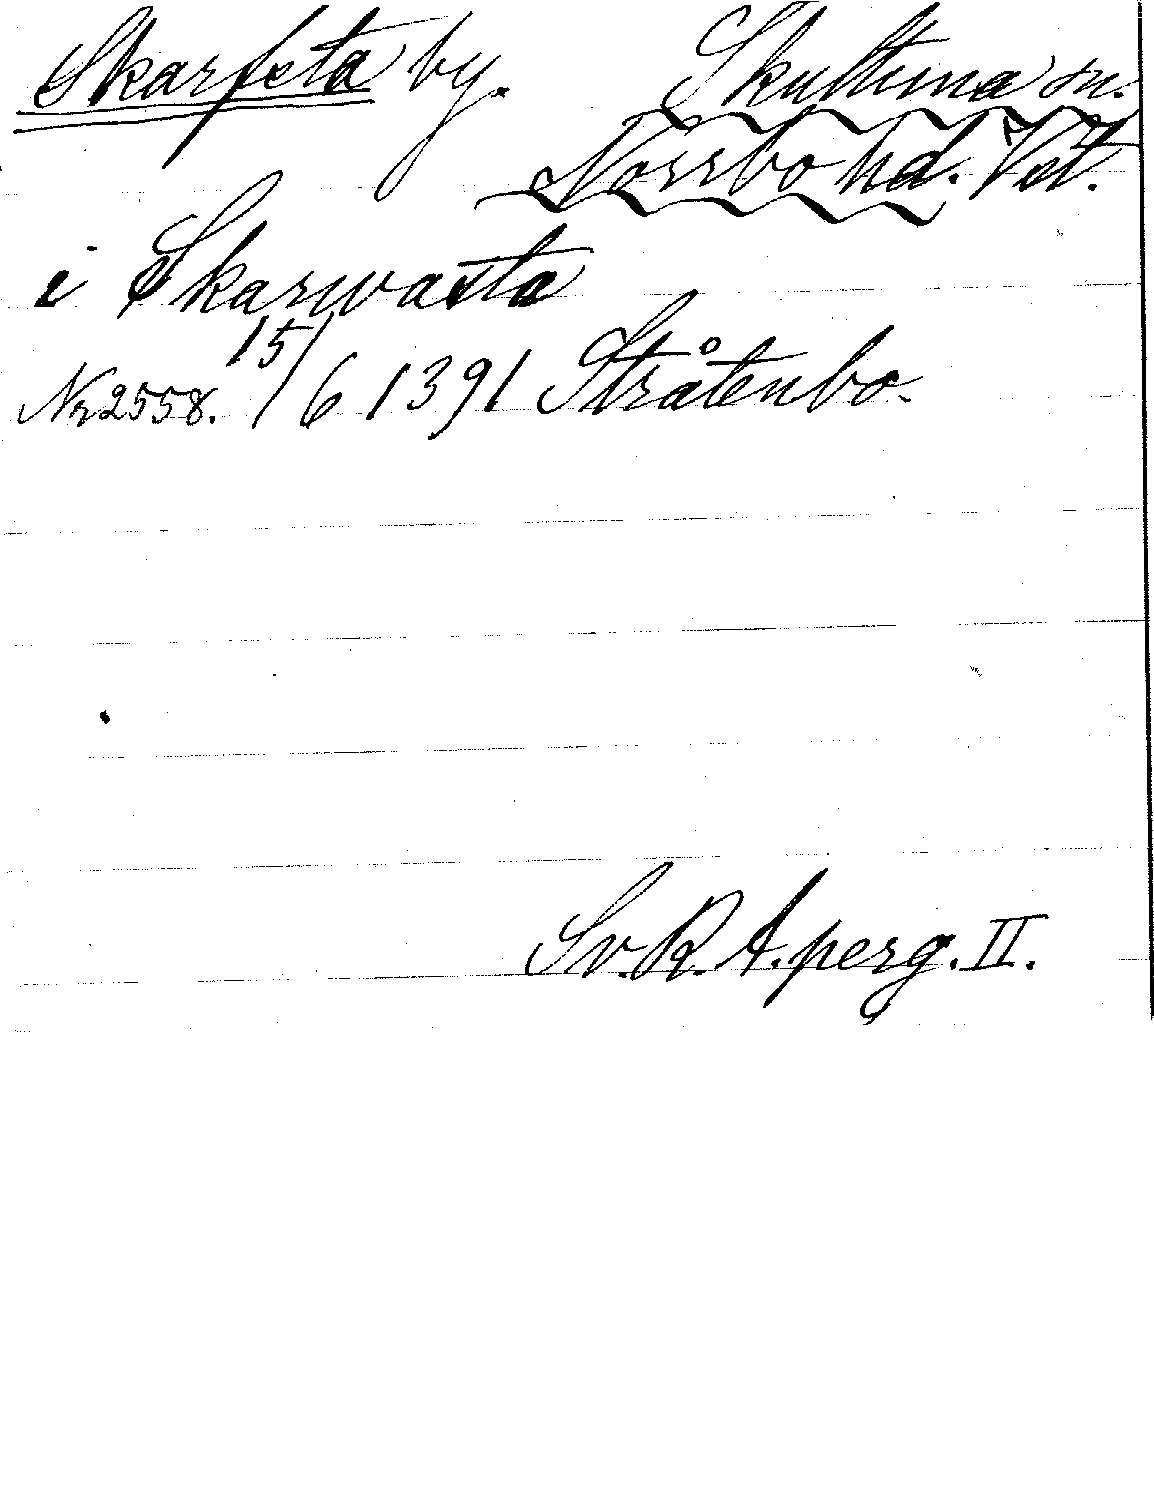 Skarfsta by. Skultuna sn.
Norrbo hd. Vstl.
i Skarwasta
Nr 2558. 15/6 1391 Ståtenbo.
Sv. R. A. perg. II.